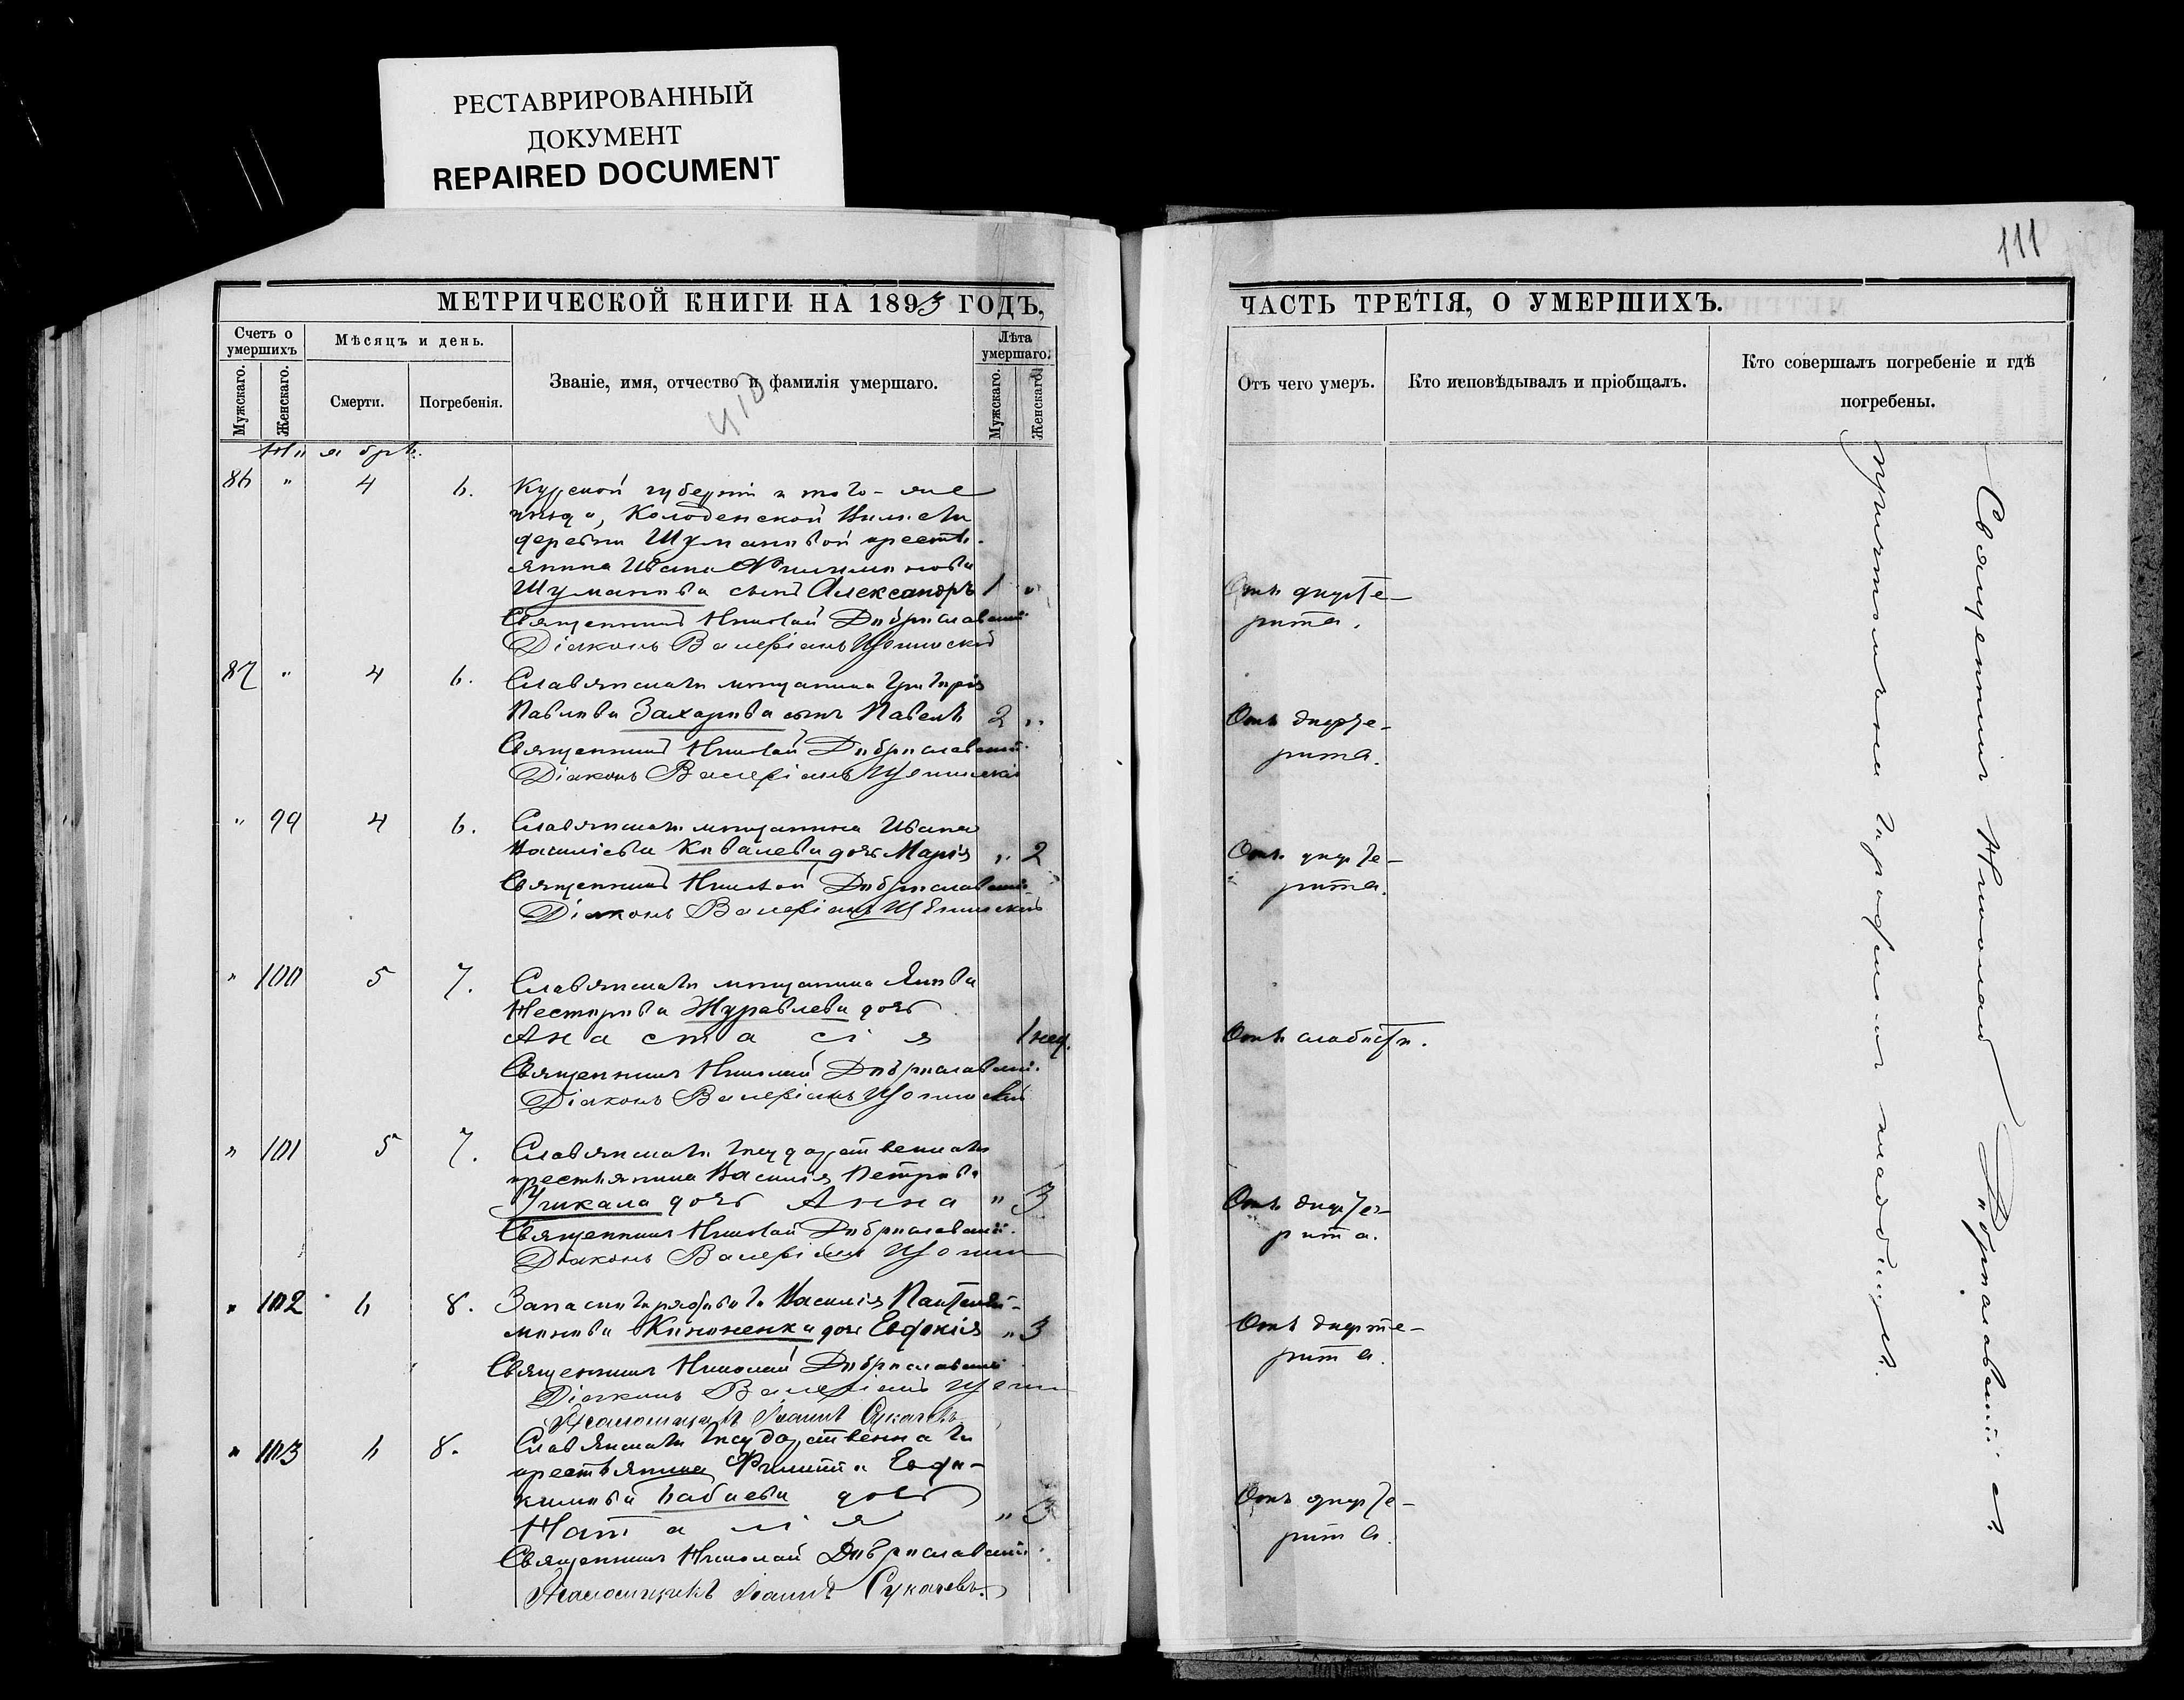 РЕСТАВРИРОВАННЫЙ
ДОКУМЕНТ
REPAIRED DOCUMENT
МЕТРИЧЕСКОЙ КНИГИ НА 1893 ГОДЪ,
Счетъ о умершихъ
Мѣсяцъ и день.
Званіе, имя, отчество и фамилія умершаго.
Лѣта умершаго.
Мужскаго.
Женскаго.
Смерти.
Погребенія.
Мужскаго.
Женскаго.
410
Ноябрь.
86 " 4 6. Курской губерніи и того-же
уѣзда, Колоденской Волости
деревни Шумаковой кресть-
янина Ивана Филимонова
Шумакова сынъ Александръ 1 "
Священникъ Николай Доброславскій
Діаконъ Валеріанъ
87 " 4 6. Славянскаго мѣщанина Григорія
Павлова Захарова сынъ Павелъ 2 "
Священникъ Николай Доброславскій
Діаконъ Валеріанъ
" 99 4 6. Славянскаго мѣщанина Ивана
Василіева Ковалева дочь Марія " 2
Священникъ Николай Доброславскій
Діаконъ Валеріанъ
" 100 5 7. Славянскаго мѣщанина Якова
Несторова Журавлева дочь
Анастасія 1 нед.
Священникъ Николай Доброславскій
Діаконъ Валеріанъ
" 101 5 7. Славянскаго государственнаго
крестьянина Василія Петрова
Чикала дочь Анна " 3
Священникъ Николай Доброславскій
Діаконъ Валеріанъ
" 102 6 8. Запаснаго рядоваго Василія Пантелей-
монова Кононенка дочь Евдокія " 3
Священникъ Николай Доброславскій
Діаконъ Валеріанъ
Псаломщикъ Іоаннъ Сукачевъ
" 103 6 8. Славянскаго государственнаго
крестьянина Филиппа Евдо-
кимова Бабаева дочь
Наталія " 3
Священникъ Николай Доброславскій
Псаломщикъ Іоаннъ Сукачевъ.
111
ЧАСТЬ ТРЕТІЯ, О УМЕРШИХЪ.
Отъ чего умеръ.
Кто исповѣдывалъ и пріобщалъ.
Кто совершалъ погребеніе и гдѣ
погребены.
Отъ дифте-
рита.
Отъ дифте-
рита.
Отъ дифте-
рита.
Отъ слабости.
Отъ дифте-
рита.
Отъ дифте-
рита.
Отъ дифте-
рита.
Священникъ Николай Доброславскій съ
причтомъ на городскомъ кладбищѣ.